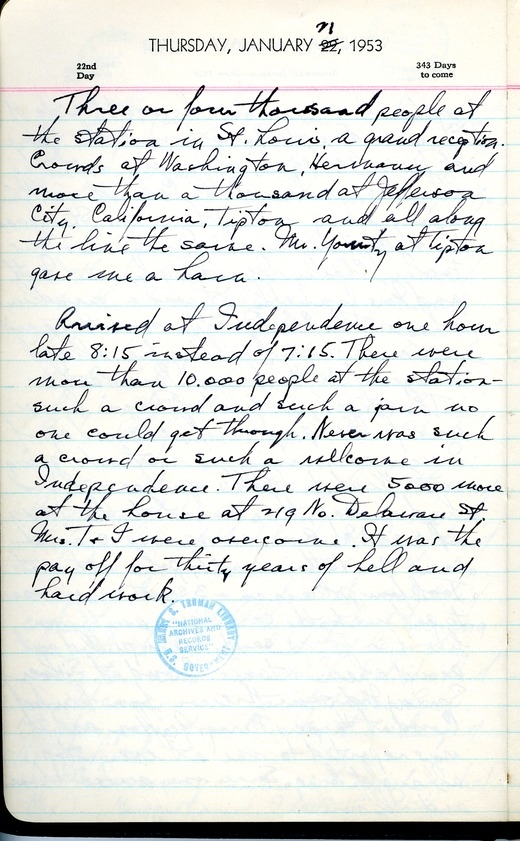 21
THURSDAY, JANUARY 22, 1953
22nd
Day
343 Days
to come
Three or four thousand people at
the station in St. Louis, a grand reception.
Crowds at Washington, Hermann and
more than a thousand at Jefferson
City. California, Tipton and all along
the line the same. Mr. Younty at Tipton
gave me a ham.
Arrived at Independence one hour
late 8:15 instead of 7:15. There were
more than 10.000 people at the station-
such a crowd and such a jam no
one could get through. Never was such
a crowd or such a wellcome in
Independence. There were 5000 more
at the house at 219 No. Delaware St
Mrs. T & I were overcome. It was the
pay off for thirty years of hell and
hard work.
HARRY S. TRUMAN LIBRARY
"NATIONAL
ARCHIVES AND
RECORDS
SERVICE"
U.S. GOVERNMENT